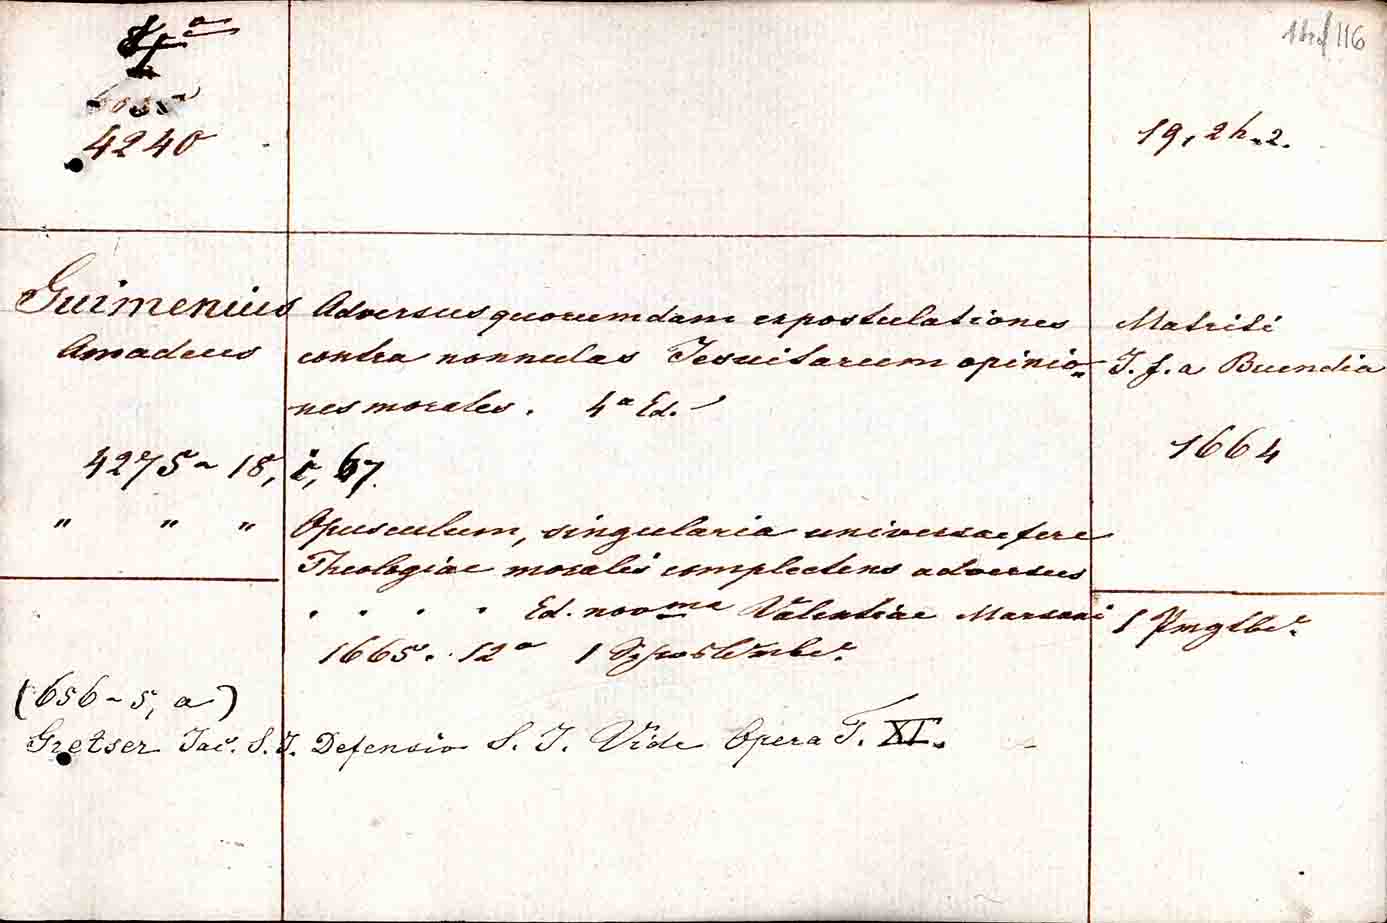 116
4240
19, 2h. 2.
Guimenius Adversus quorumdam expostulationes Matriti
Amadeus contra nonnulas Jesuitarum opinio- J. f. a Buendia
nes morales. 4a Ed.
1664
4275 - 18, i, 67.
" " " Opusculum, singularia universae fere
Theologiae moralis complectens adversus
. . . . Ed. novma Valentiae Marsani
1665. 12o 1
1 Pmgtbd.
(656 - 5, a)
Gretser Jac. S. J. Defensio S. J. Vide Opera T. XI.